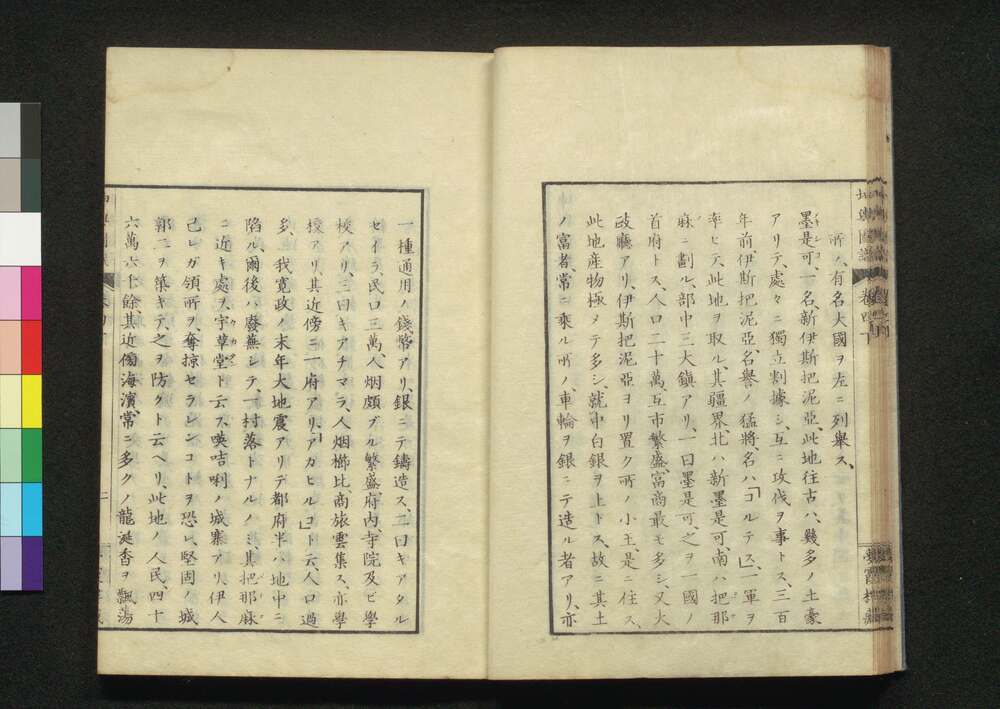 所ノ、有名大國ヲ左ニ列舉ス、
墨是可、一名、新伊斯把泥亞、此地往古ハ、幾多ノ土豪
メキシコ
アリテ、處々ニ獨立割據シ、互ニ攻伐ヲ事トス、三百
年前伊斯把泥亞、名譽ノ猛將、名ハ「コルテス」、一軍ヲ
率ヒテ、此地ヲ取ル、其疆界、北ハ新墨是可、南ハ把那
麻ニ劃ル、部中三大鎮アリ、一曰墨是可、之ヲ一國ノ
首府トス、人口二十萬、互市繁盛、富商最モ多シ、又大
政廳アリ、伊斯把泥亞ヨリ置ク所ノ小王、是ニ住ス、
此地産物極メテ多シ、就中白銀ヲ上トス、故ニ其土
ノ富者、常ニ乘ル所ノ車輪ヲ銀ニテ造ル者アリ、亦
一種通用ノ錢幣アリ、銀ニテ鑄造ス、二曰キアタル
セイラ、民口三萬、人烟頗ブル繁盛、府内、寺院及ビ學
校アリ、三曰キアチマラ、人烟櫛比、商旅雲集ス、亦學
校アリ、其近傍ニ一府アリ、「アカヒルコ」ト云、人口過
多、我寛政ノ末年大地震アリテ都府半ハ地中ニ
陷ル、爾後ハ廢蕪シテ、一村落トナルノミ、其把那麻
ニ近キ處ヲ、宇革堂ト云ス、暎咭唎ノ城寨アリ、伊人
己レガ領所ヲ、奪掠セラレンコトヲ恐レ、堅固ノ城
郭二ヲ築キテ、之ヲ防クト云ヘリ、此地ノ人民、四十
六萬六千餘其近傍海濱、常ニ多クノ龍涎香ヲ飄蕩